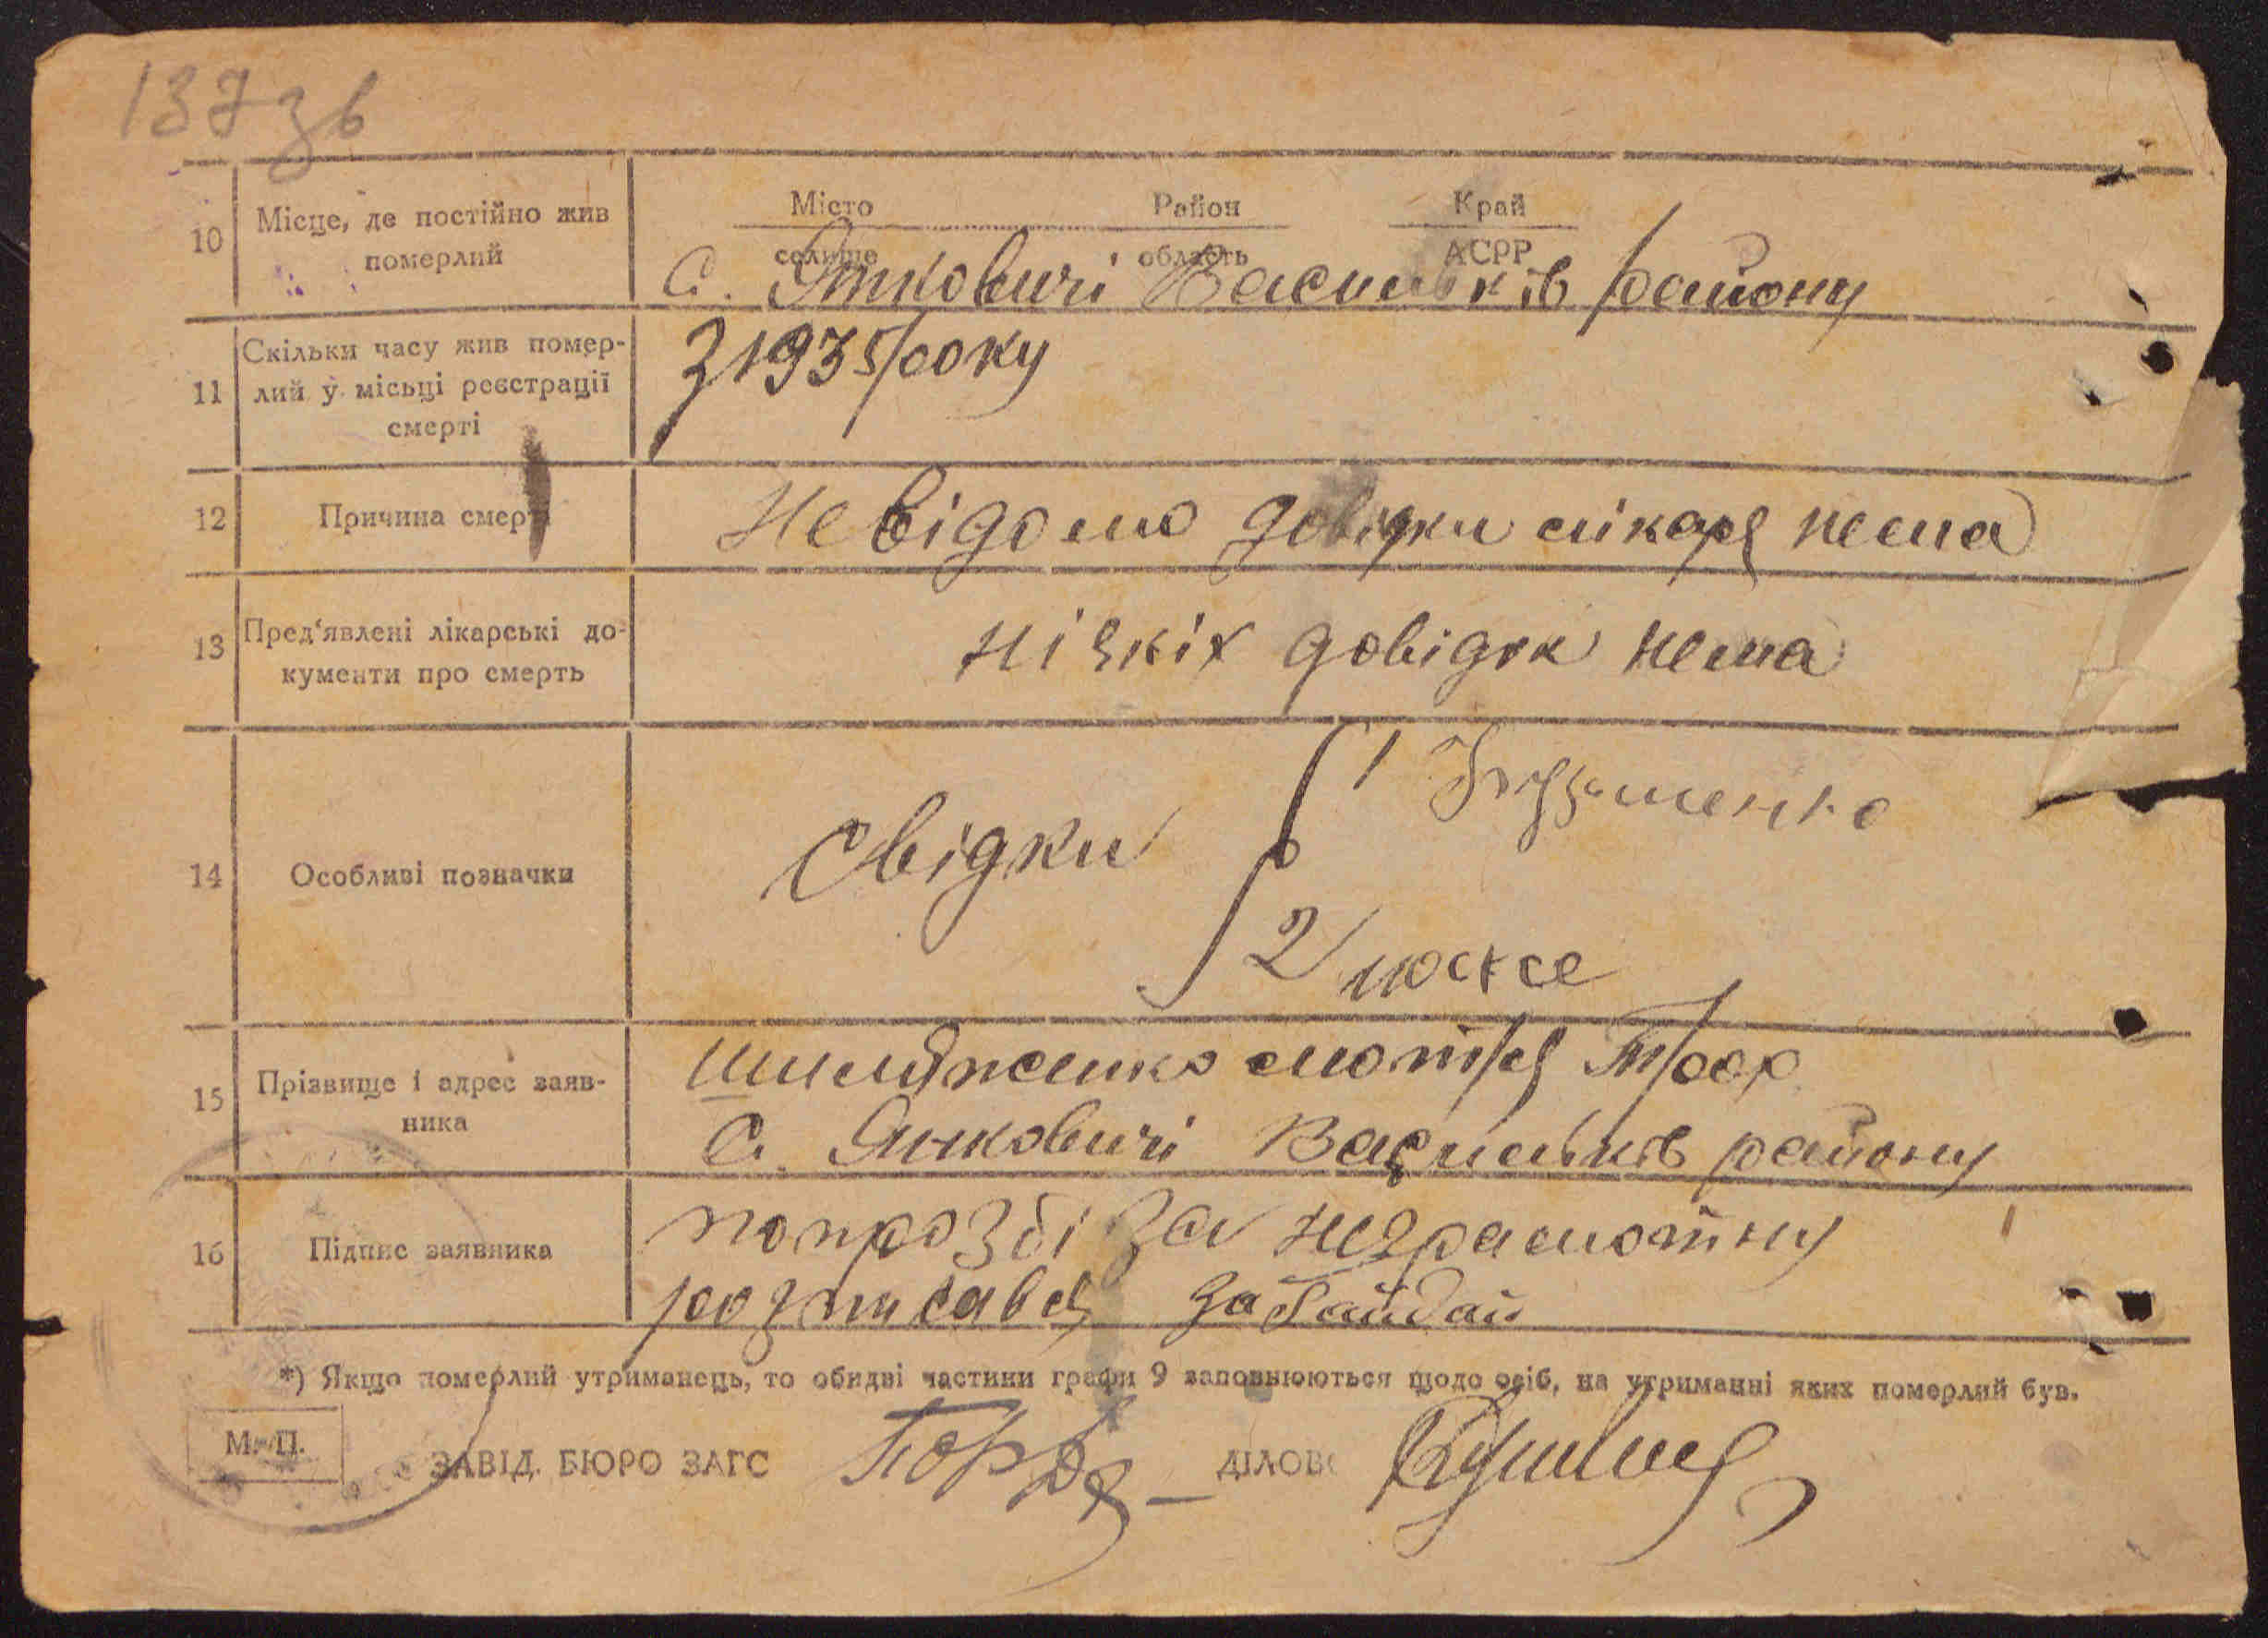 137 зв
10 Місце, де постійно жив померлий
Місто Район Край
селище область АСРР
С. Янковичі Васильків району
11 Скільки часу жив помер-
лий у місьці реєстрації
смерті
З 1935 року
12 Причина смерті
Не відомо довідки лікаря нема
13 Пред'явлені лікарські до-
кументи про смерть
ніякіх довідок нема
14 Особливі позначки
Свідки
1
2
15 Прізвище і адрес заяв-
ника
мотря
С. Янковичі Васильків району
16 Підпис заявника
по прозбі за неграмотну
розписався за
*) Якщо померлий утриманець, то обидві частини графи 9 заповнюються щодо осіб, на утриманні яких померлий був.
М. П.
ЗАВІД. БЮРО ЗАГС ДІЛОВ